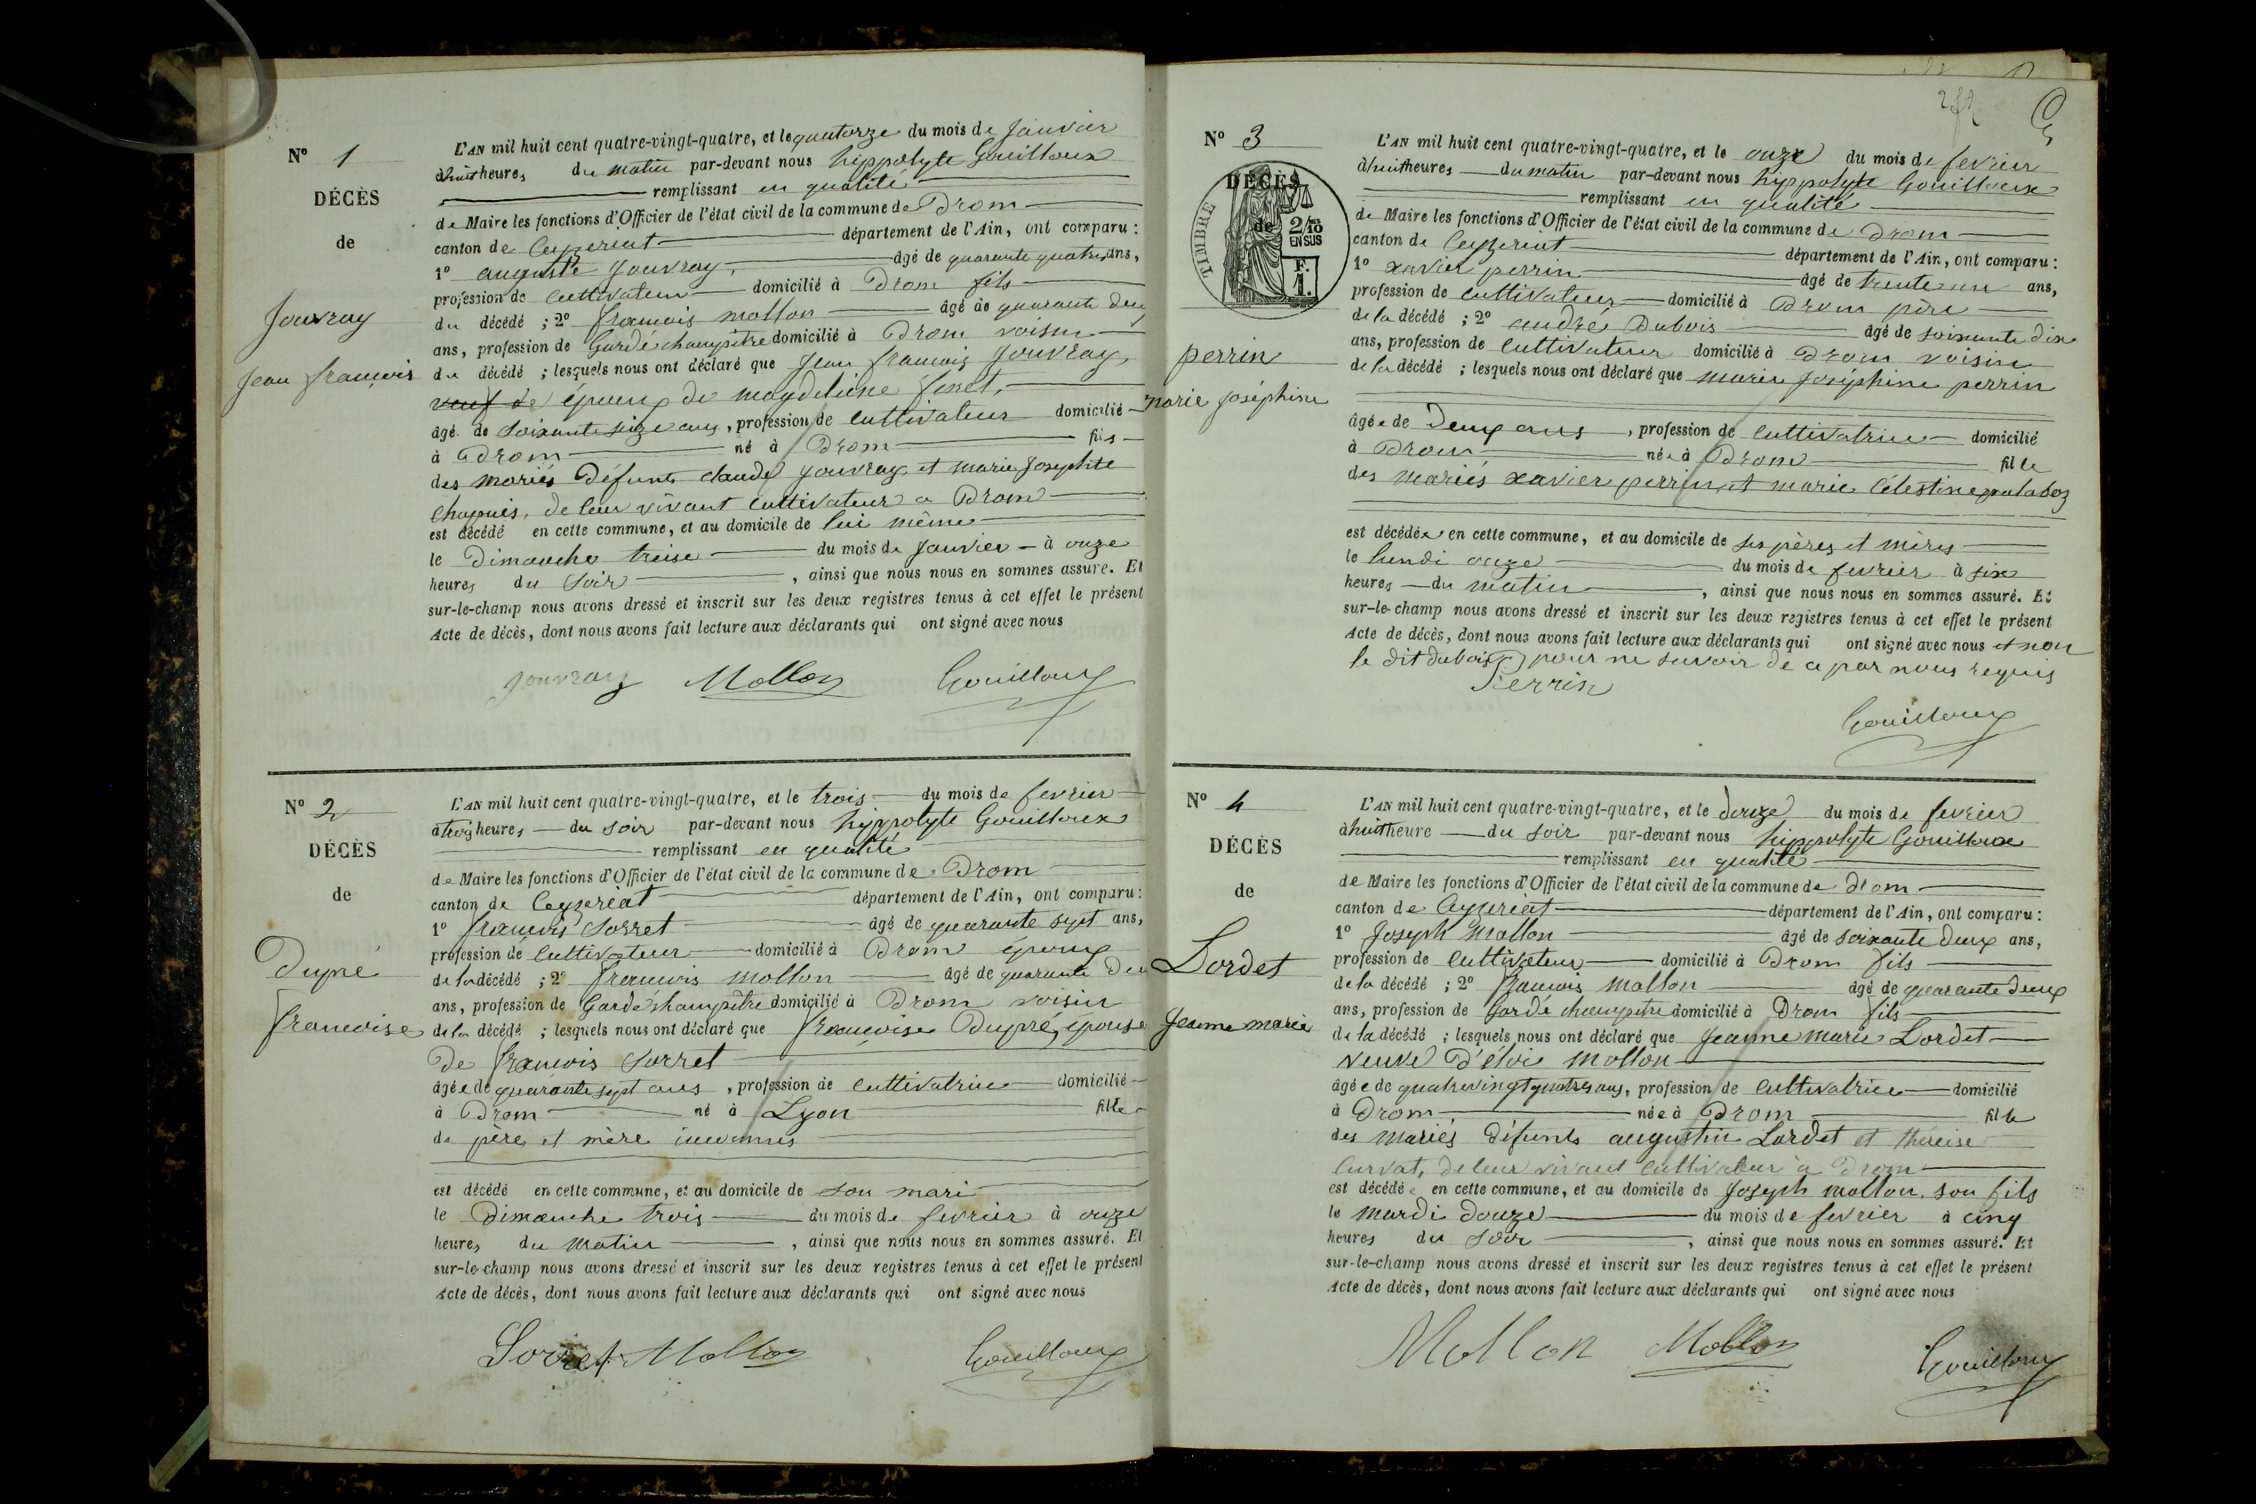 N° 1
DÉCÈS
de
Jouvray
Jean françois
L'AN mil huit cent quatre-vingt-quatre, et le quatorze du mois de Janvier
à huit heures du matin par-devant nous hippolyte Gouilloux
remplissant en qualité
de Maire les fonctions d'Officier de l'état civil de la commune de Drom
canton de Ceyzeriat département de l'Ain, ont comparu :
1° auguste Jouvray, âgé de quarante quatre ans,
profession de cultivateur domicilié à Drom fils
du décédé ; 2° françois mollon âgé de quarante deux
ans, profession de Garde champêtre domicilié à Drom voisin
du décédé ; lesquels nous ont déclaré que Jean francois Jouvray,
veuf de époux de magdeleine
âgé de soixante seize ans, profession de cultivateur domicilié
à Drom né à Drom fils
des mariés Défunts claude Jouvray et marie Josephte
chapuis, de leur vivant cultivateur a Drom
est décédé en cette commune, et au domicile de lui même
le Dimanche treise du mois de Janvier à onze
heures du soir, ainsi que nous nous en sommes assuré. Et
sur-le-champ nous avons dressé et inscrit sur les deux registres tenus à cet effet le présent
Acte de décès, dont nous avons fait lecture aux déclarants qui ont signé avec nous
Jouvray Mollon Gouilloux
N° 2
DÉCÈS
de
Dupré
francoise
L'AN mil huit cent quatre-vingt-quatre, et le trois du mois de fevrier
à trois heures du soir par-devant nous hippolyte Gouilloux
remplissant en qualité
de Maire les fonctions d'Officier de l'état civil de la commune de Drom
canton de Ceyzeriat département de l'Ain, ont comparu :
1° francois Sorret âgé de quarante sept ans,
profession de cultivateur domicilié à Drom époux
de la décédé ; 2° francois mollon âgé de quarante deu
ans, profession de Garde champêtre domicilié à Drom voisin
de la décédé ; lesquels nous ont déclaré que francoise Dupré, épouse
de francois Sorret
âgée de quarante sept ans, profession de cultivatrice domicilié
à Drom né à Lyon fille
de père et mère inconnus
est décédé en cette commune, et au domicile de son mari
le Dimanche trois du mois de fevrier à onze
heures du matin, ainsi que nous nous en sommes assuré. Et
sur-le-champ nous avons dressé et inscrit sur les deux registres tenus à cet effet le présent
Acte de décès, dont nous avons fait lecture aux déclarants qui ont signé avec nous
Sorret Mollon Gouilloux
N° 3
DÉCÈS
de
TIMBRE
2/10
EN SUS
F.
1.
perrin
marie joséphine
L'AN mil huit cent quatre-vingt-quatre, et le onze du mois de fevrier
à huit heures du matin par-devant nous hippolyte Gouilloux
remplissant en qualité
de Maire les fonctions d'Officier de l'état civil de la commune de Drom
canton de Ceyzeriat département de l'Ain, ont comparu :
1° xavier perrin âgé de trente un ans,
profession de cultivateur domicilié à Drom père
de la décédé ; 2° andré Dubois âgé de soixante dix
ans, profession de cultivateur domicilié à Drom voisin
de la décédé ; lesquels nous ont déclaré que marie Joséphine perrin
âgée de Deux ans, profession de cultivatrice domicilié
à Drom née à Drom fille
des mariés xavier perrin et marie Célestine
est décédée en cette commune, et au domicile de ses pères et mères
le lundi onze du mois de fevrier à six
heures du matin, ainsi que nous nous en sommes assuré. Et
sur-le-champ nous avons dressé et inscrit sur les deux registres tenus à cet effet le présent
Acte de décès, dont nous avons fait lecture aux déclarants qui ont signé avec nous et non
le dit dubois pour ne savoir de ce par nous requis
Perrin
Gouilloux
N° 4
DÉCÈS
de
Lordet
Jeanne marie
L'AN mil huit cent quatre-vingt-quatre, et le douze du mois de fevrier
à huit heure du soir par-devant nous hippolyte Gouilloux
remplissant en qualité
de Maire les fonctions d'Officier de l'état civil de la commune de drom
canton de Ceyzeriat département de l'Ain, ont comparu :
1° Joseph Mollon âgé de soixante Deux ans,
profession de cultivateur domicilié à Drom fils
de la décédé ; 2° francois Mollon âgé de quarante deux
ans, profession de Garde champetre domicilié à Drom fils
de la décédé ; lesquels nous ont déclaré que Jeanne marie Lordet
veuve d'éloi mollon
âgée de quatrevingt quatre ans, profession de cultivatrice domicilié
à Drom née à Drom fille
des mariés Défunts augustin Lordet et thereise
Curvat, de leur vivant cultivateur à Drom
est décédée en cette commune, et au domicile de Joseph mollon son fils
le mardi douze du mois de fevrier à cinq
heures du soir, ainsi que nous nous en sommes assuré. Et
sur-le-champ nous avons dressé et inscrit sur les deux registres tenus à cet effet le présent
Acte de décès, dont nous avons fait lecture aux déclarants qui ont signé avec nous
Mollon Mollon Gouilloux